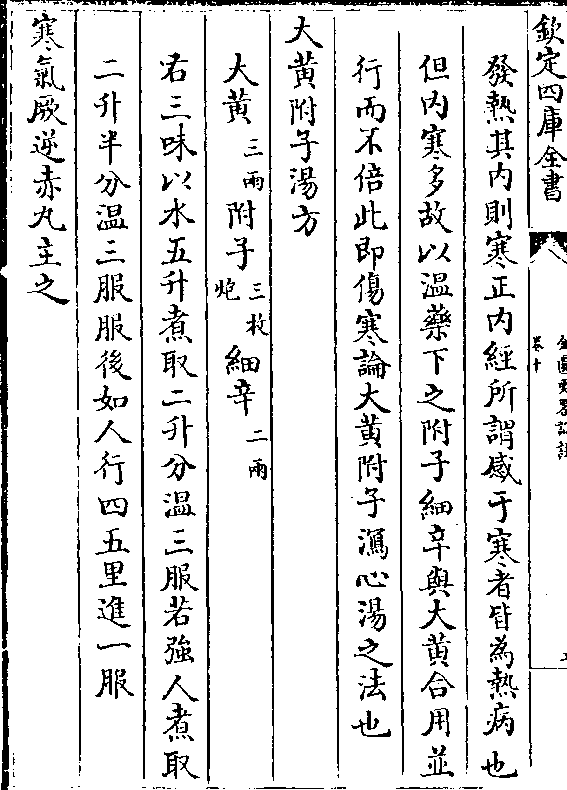 欽定四庫全書
卷十
發熱其内則寒正内經所謂感于寒者皆為熱病也
但内寒多故以温藥下之附子細辛與大黄合用並
行而不倍此即傷寒論大黄附子瀉心湯之法也
大黄附子湯方
大黄三兩附子三枚炮細辛二兩
右三味以水五升煮取二升分温三服若強人煮取
二升半分温三服服後如人行四五里進一服
寒氣厥逆赤丸主之